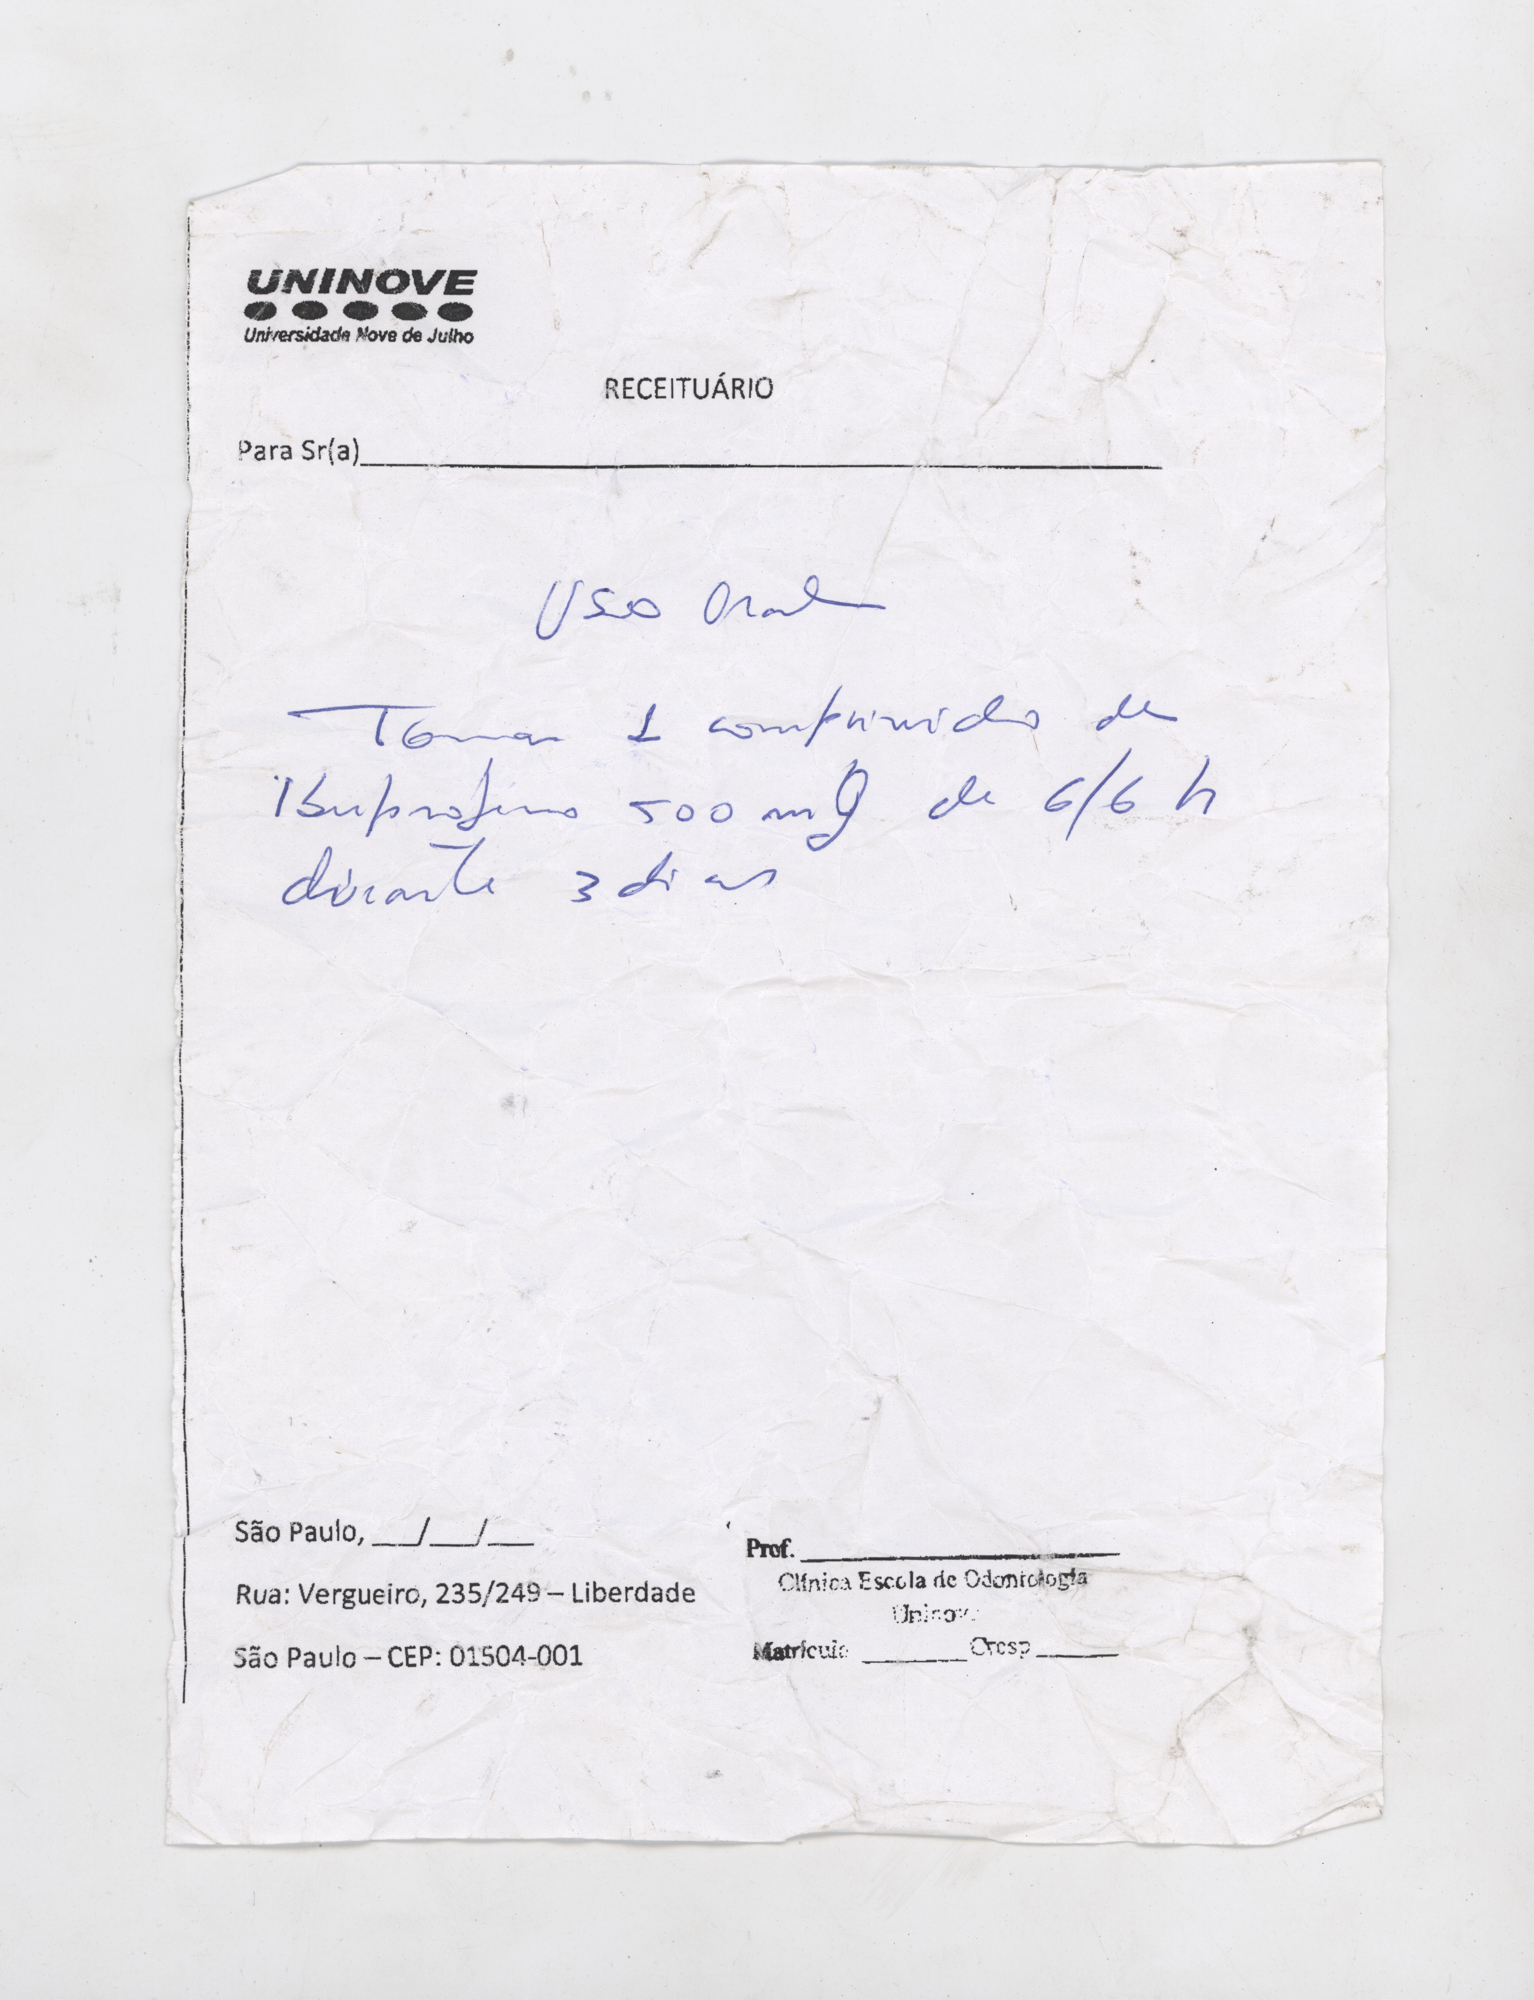 UNINOVE
Universidade Nove de Julho
RECEITUÁRIO
Para Sr(a)
Uso Oral
Tomar 1 comprimido de
Ibuprofeno 500 mg de 6/6 h
durante 3 dias
São Paulo, __/__/__
Rua: Vergueiro, 235/249 – Liberdade
São Paulo – CEP: 01504-001
Prof.
Clínica Escola de Odontologia
Uninove
Matrícula ______ Crosp ______